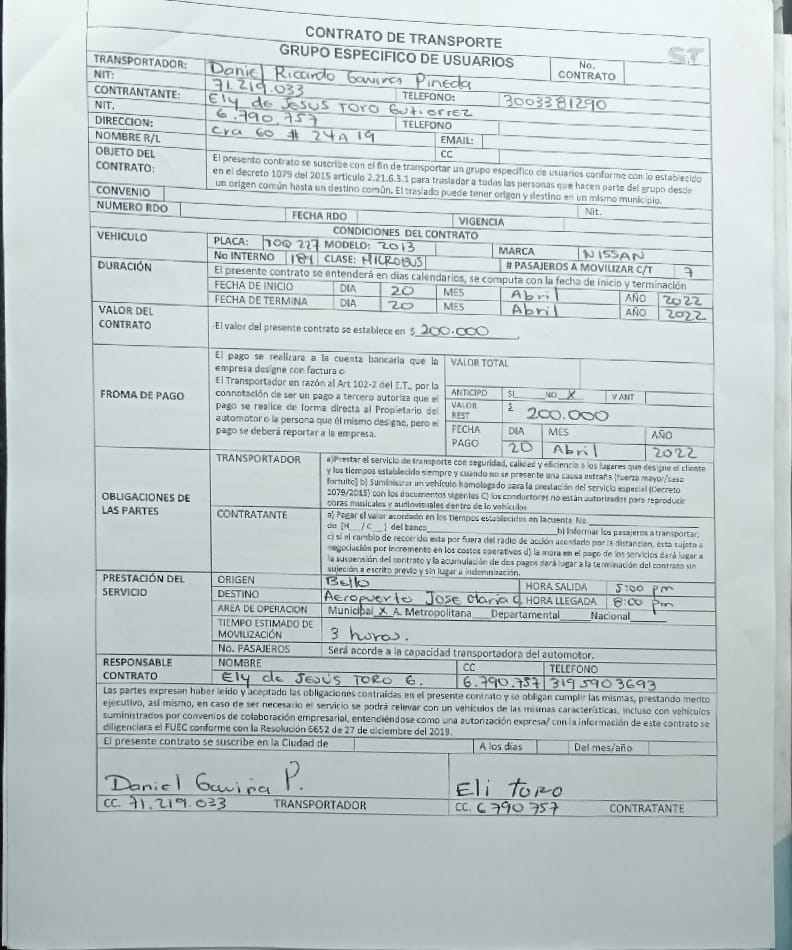 CONTRATO DE TRANSPORTE
GRUPO ESPECIFICO DE USUARIOS
ST
TRANSPORTADOR: Daniel Ricardo Gaviria Pineda No. CONTRATO
NIT: 71.219.033 TELEFONO: 3003381290
CONTRANTANTE: Ely de Jesus Toro Gutierrez
NIT. 6.790.757 TELEFONO
DIRECCION: Cra 60 # 24A 19 EMAIL:
NOMBRE R/L CC
OBJETO DEL CONTRATO: El presento contrato se suscribe con el fin de transportar un grupo especifico de usuarios conforme con lo establecido
en el decreto 1079 del 2015 articulo 2.21.6.3.1 para trasladar a todas las personas que hacen parte del grupo desde
un origen común hasta un destino común. El traslado puede tener origen y destino en un mismo municipio.
CONVENIO Nit.
NUMERO RDO FECHA RDO VIGENCIA
CONDICIONES DEL CONTRATO
VEHICULO PLACA: TOQ 227 MODELO: 2013 MARCA NISSAN
No INTERNO 181 CLASE: MICROBUS # PASAJEROS A MOVILIZAR C/T 7
DURACIÓN El presente contrato se entenderá en días calendarios, se computa con la fecha de inicio y terminación
FECHA DE INICIO DIA 20 MES Abril AÑO 2022
FECHA DE TERMINA DIA 20 MES Abril AÑO 2022
VALOR DEL CONTRATO El valor del presente contrato se establece en $ 200.000
FROMA DE PAGO El pago se realizara a la cuenta bancaria que la
empresa designe con factura o
El Transportador en razón al Art 102-2 del E.T., por la
connotación de ser un pago a tercero autoriza que el
pago se realice de forma directa el Propietario del
automotor o la persona que él mismo designe, pero el
pago se deberá reportar a la empresa.
VALOR TOTAL
ANTICIPO SI NO X V ANT
VALOR REST $ 200.000
FECHA PAGO DIA MES AÑO
20 Abril 2022
OBLIGACIONES DE LAS PARTES
TRANSPORTADOR a)Prestar el servicio de transporte con seguridad, calidad y eficiencia a los lugares que designe el cliente
y los tiempos establecido siempre y cuando no se presente una causa extraña (fuerza mayor/caso
fortuito) b) Suministrar un vehículo homologado para la prestación del servicio especial (Decreto
1079/2015) con los documentos vigentes C) los conductores no están autorizados para reproducir
obras musicales y audiovisuales dentro de lo vehículos
CONTRATANTE a) Pagar el valor acordado en los tiempos establecidos en la cuenta No.
de (H__/C__) del banco b) Informar los pasajeros a transportar;
c) si el cambio de recorrido esta por fuera del radio de acción acordado por la distancian, esta sujeto a
negociación por incremento en los costos operativos d) la mora en el pago de los servicios dará lugar a
la suspensión del contrato y la acumulación de dos pagos dará lugar a la terminación del contrato sin
sujeción a escrito previo y sin lugar a indemnización.
PRESTACIÓN DEL SERVICIO
ORIGEN Bello HORA SALIDA 5:00 pm
DESTINO Aeropuerto Jose Maria C. HORA LLEGADA 8:00 pm
AREA DE OPERACION Municipal X A. Metropolitana Departamental Nacional
TIEMPO ESTIMADO DE MOVILIZACIÓN 3 horas.
No. PASAJEROS Será acorde a la capacidad transportadora del automotor.
RESPONSABLE CONTRATO NOMBRE CC TELEFONO
Ely de Jesus Toro G. 6.790.757 3195903693
Las partes expresan haber leído y aceptado las obligaciones contraídas en el presente contrato y se obligan cumplir las mismas, prestando merito
ejecutivo, así mismo, en caso de ser necesario el servicio se podrá relevar con un vehículos de las mismas características, incluso con vehículos
suministrados por convenios de colaboración empresarial, entendiéndose como una autorización expresa/ con la información de este contrato se
diligenciara el FUEC conforme con la Resolución 6652 de 27 de diciembre del 2019.
El presente contrato se suscribe en la Ciudad de A los días Del mes/año
Daniel Gaviria P. Eli Toro
CC. 71.219.033 TRANSPORTADOR CC. 6790757 CONTRATANTE